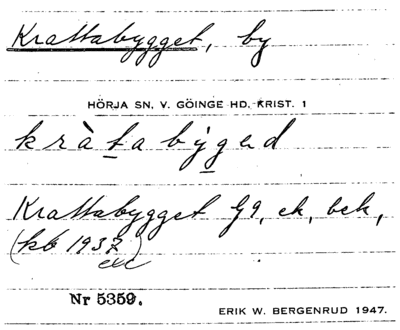 Krattabygget, by
HÖRJA SN. V. GÖINGE HD. KRIST. 1
kràtabýgend
Krattabygget Gg, ek, bek,
(kb 1937)
Nr 5359.
ERIK W. BERGENRUD 1947.